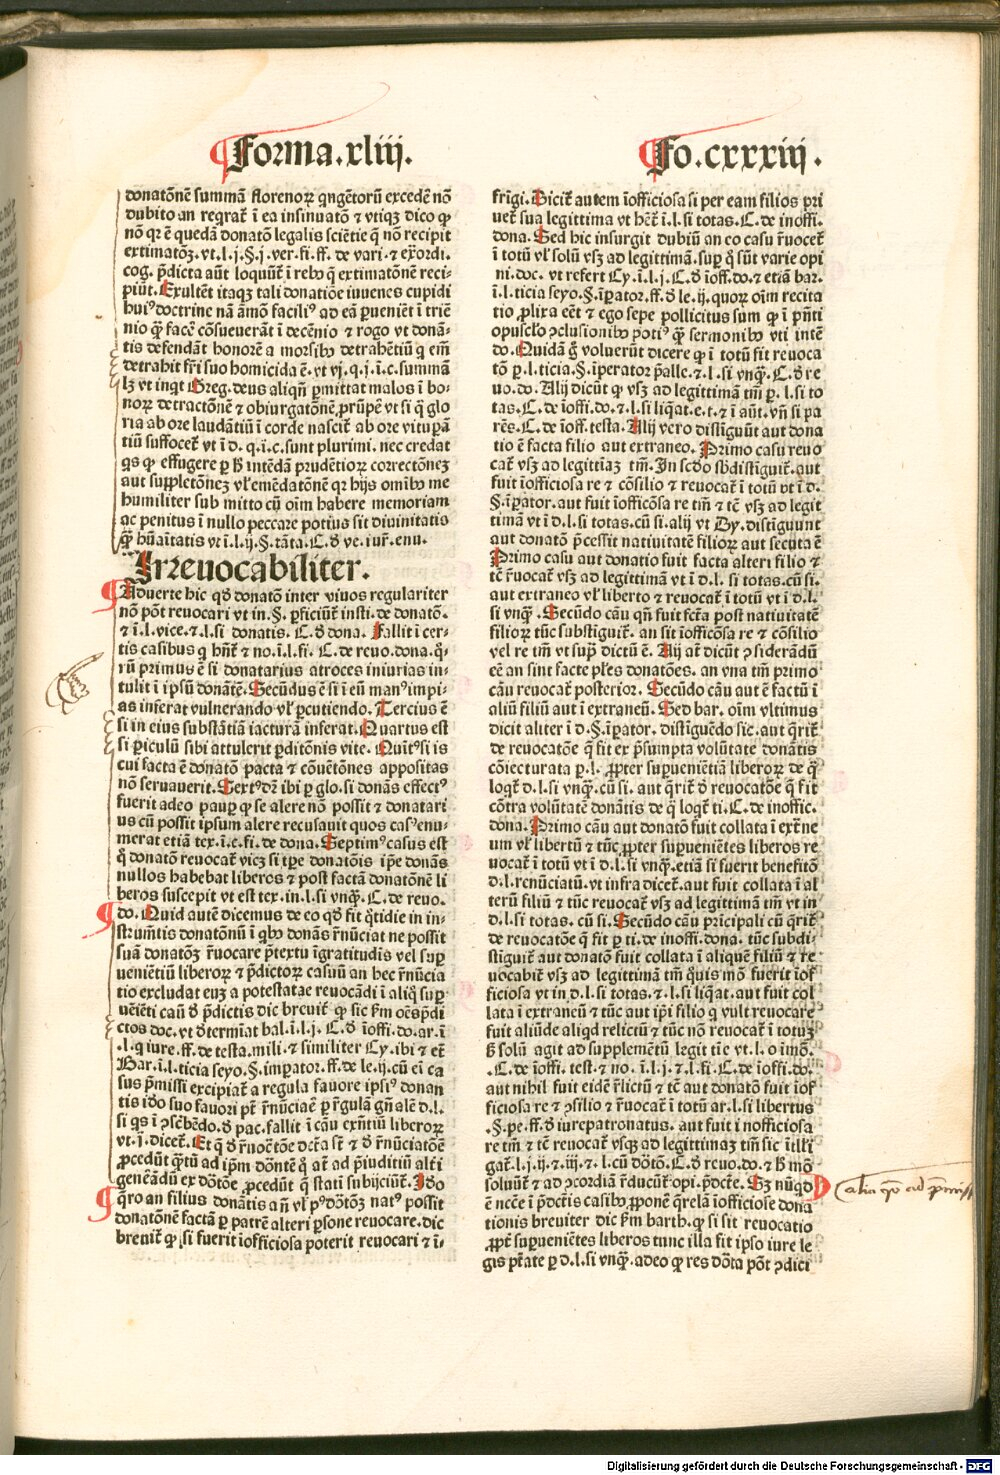 Forma.xliij.
Fo.cxxxiij.
donatōnē summā florenoꝝ qngētorū excedē nō
dubito an reqrat̄ ī ea insinuatō ⁊ vtiqꝫ dico ꝙ
nō qꝛ ē quedā donatō legalis sciētie q̄ nō recipit
extimatōꝫ.vt.l.j.§.j.ver.fi.ff.de vari.⁊ exordi.
cog.p̄dicta aūt loquūt̄ ī rebꝰ q̄ extimatōnē reci-
piūt.Exultēt itaqꝫ tali donatiōe iuuenes cupidi
huiꝰ doctrine nā āmō faciliꝰ ad eā ꝑueniēt ī triē
nio q̄ꝫ facē cōsueuerāt ī decēnio ⁊ rogo vt donā-
tis defendāt honorē a morsibꝰ detrahētiū q em̄
detrahit fr̄i suo homicida ē.vt vj.q.j.c.summā
lꝫ vt inqt Greg.deus aliqn̄ ꝑmittat malos ī bo-
noꝝ detractōnē ⁊ obiurgatōnē ꝓrūpē vt si q̄ glo
ria ab ore laudātiū ī corde nascit̄ ab ore vituꝑā
tiū suffocet̄ vt ī d.q.i.c.sunt plurimi.nec credat
qs ꝙ effugere ꝑ h̄ intēdā prudētioꝝ correctōneꝫ
aut suppletōneꝫ vl̓ emēdatōnē qꝛ hijs omībꝰ me
humiliter sub mitto cū oīm habere memoriam
ac penitus ī nullo peccare potius sit diuinitatis
q̄ꝫ hūaītatis vt ī.l.ij.§.tāta.C.ꝺ ve.iur̄.enu.
Irreuocabiliter.
Aduerte hic qꝺ donatō inter viuos regulariter
nō pōt reuocari vt in.§.ꝑficiūt̄ insti.de donatō.
⁊ ī.l.vice.⁊.l.si donatis.C.ꝺ dona.Fallit ī cer-
tis casibus q hn̄t̄ ⁊ no.ī.l.fi.C.de reuo.dona.q̄-
rū primus ē si donatarius atroces iniurias in-
tulit ī ipsū donātē.Secūdus ē si ī eū manꝰ impi-
as inferat vulnerando vl̓ ꝑcutiendo.Tercius ē
si in eius substātiā iacturā inferat.Quartus est
si ꝑiculū sibi attulerit ꝑditōnis vite.Quītꝰ si is
cui facta ē donatō pacta ⁊ cōuētōnes appositas
nō seruauerit.Sextꝰ dꝛ ibi ꝑ glo.si donās effectꝰ
fuerit adeo pauꝑ ꝙ se alere nō possit ⁊ donatari
us cū possit ipsum alere recusauit quos casꝰ enu-
merat etiā tex.ī.c.fi.de dona.Septimꝰ casus est
q̄ donatō reuocat̄ vicꝫ si tꝑe donatōis ip̄e donās
nullos habebat liberos ⁊ post factā donatōnē li
beros suscepit vt est tex.in.l.si vnqꝫ.C.de reuo.
do.Quid autē dicemus de eo qꝺ fit qͥtidie in in-
strum̄tis donatōnū ī qbꝰ donās r̄nūciat ne possit
suā donatōꝫ r̄uocare p̄textu īgratitudis vel suꝑ
ueniētiū liberoꝝ ⁊ p̄dictoꝝ casuū an hec r̄nūcia
tio excludat euꝫ a potestatae reuocādi ī aliq̄ suꝑ
uēiēti caū ꝺ p̄dictis dic breuit̄ ꝙ sic km̄ oēs p̄di
ctos doc.vt ꝺtermīat bal.ī.l.j.C.ꝺ īoffi.do.ar.ī
.l.q iure.ff.de testa.mili.⁊ similiter Cy.ibi ⁊ et̄
Bar.ī.l.ticia seyo.§.imꝑator.ff.de le.ij.cū eī ca
sus p̄missi excipiat̄ a regula fauore ipsiꝰ donan
tis iꝺo suo fauori pt̄ r̄nūciaē ꝑ r̄gulā gn̄alē d.l.
si qs ī ꝯscbēdo.ꝺ pac.fallit ī cāu exn̄tiū liberoꝝ
vt.j.dicet̄.Et q ꝺ r̄uoc̄tōe dc̄ta st̄ ⁊ ꝺ r̄nūciatōē
ꝓcedūt q̄tū ad ip̄m dōntē q̊ at̄ ad p̄iuditiū alt̓i
geneādū ex dōtōe ꝓcedūt q̄ statī subijciūt̄.Iꝺo
qͥro an filius donātis an̄ vl̓ pꝰ dōtōꝫ natꝰ possit
donatōnē factā ꝑ patrē alteri ꝑsone reuocare.dic
breuit̄ ꝙ si fuerit īofficiosa poterit reuocari ⁊ ī-
frīgi.Dicit̄ autem īofficiosa si per eam filios pri
uet̄ sua legittima vt hēt̄ ī.l.si totas.C.de inoffi.
dona.Sed hic insurgit dubiū an eo casu r̄uocet̄
ī totū vl̓ solū vsꝫ ad legittimā.suꝑ q̊ sūt varie opi
ni.doc.vt refert Cy.ī.l.j.C.ꝺ īoff.do.⁊ etiā bar.
ī.l.ticia seyo.§.īꝑator.ff.ꝺ le.ij.quoꝝ oīm recita
tio ꝓlixa eēt ⁊ ego sepe pollicitus sum ꝙ ī pn̄ti
opusclo ꝯclusionibꝰ potiꝰ q̄ꝫ sermonibꝰ vti intē
do.Quidā g̊ voluerūt dicere ꝙ ī totū fit reuoca
tō ꝑ.l.ticia.§.īperator p̄alle.⁊.l.si vnqꝫ.C.ꝺ re
uo.do.Alij dicūt ꝙ vsꝫ ad legittimā tm̄ ꝑ.l.si to
tas.C.de īoffi.do.⁊.l.si liqat.e.t.⁊ ī aūt.vn̄ si pa
rēs.C.de īoff.testa.Alij vero distīguūt aut dona
tio ē facta filio aut extraneo.Primo casu reuo
cat̄ vsꝫ ad legittīaꝫ tm̄.In scdo sb̓distīguit̄.aut
fuit īofficiosa re ⁊ cōsilio ⁊ reuocat̄ ī totū vt ī d.
§.īꝑator.aut fuit īofficōsa re tm̄ ⁊ tc̄ vsꝫ ad legit
timā vt ī d.l.si totas.cū si.alij vt Dy.distīguunt
aut donatō p̄cessit natiuitatē filioꝝ aut secuta ē
Primo casu aut donatio fuit facta alteri filio ⁊
tc̄ r̄uocat̄ vsꝫ ad legittimā vt ī d.l. si totas.cū si.
aut extraneo vl̓ liberto ⁊ reuocat̄ ī totū vt ī d.l.
si vnqꝫ.Secūdo cāu qn̄ fuit fcta post natiuitatē
filioꝝ tūc substīguit̄.an sit īofficōsa re ⁊ cōsilio
vel re tm̄ vt suꝑ̓ dictū ē.Alij at̄ dicūt ꝯsiderādū
eē an sint facte pl̓es donatōes.an vna tm̄ primo
cāu reuocat̄ posterior.Secūdo cāu aut ē factū ī
aliū filiū aut ī extraneū.Sed bar.oīm vltimus
dicit aliter ī d.§.īꝑator.distīguēdo sic.aut q̄rit̄
de reuocatōe q̄ fit ex p̄sumpta volūtate donātis
cōiecturata ꝑ.l.ꝓpter suꝑueniētiā liberoꝝ de q̄
loqt̄ d.l.si vnqꝫ.cū si.aut q̄rit̄ ꝺ reuocatōe q̄ fit
cōtra volūtatē donātis de q̄ loqt̄ ti.C.de inoffic.
dona.Primo cāu aut donatō fuit collata ī ext̄ne
um vl̓ libertū ⁊ tūc ꝓpter suꝑueniētes liberos re
uocat̄ ī totū vt ī d.l.si vnqꝫ.etiā si fuerit benefitō
d.l.renūciatū.vt infra dicet̄.aut fuit collata ī al
terū filiū ⁊ tūc reuocat̄ vsꝫ ad legittimā tm̄ vt in
d.l.si totas.cū si.Secūdo cāu prīcipali cū q̄rit̄
de reuocatōe q̄ fit ꝑ ti.de inoffi.dona.tūc subdi-
stīguit̄ aut donatō fuit collata ī aliquē filiū ⁊ re
uocabit̄ vsꝫ ad legittimā tm̄ qͥuis mō fuerit īof
ficiosa vt in d.l.si totas.⁊.l.si liqat.aut fuit col
lata ī extraneū ⁊ tūc aut ip̄i filio q vult reuocare
fuit aliūde aliqd relictū ⁊ tūc nō reuocat̄ ī totuꝫ
ß solū agit ad supplemētū legit tīe vt.l.o īmō.
.C.de īoffi.test.⁊ no.ī.l.j.⁊.l.fi.C.de īoffi.do.
aut nihil fuit eidē r̄lictū ⁊ tc̄ aut donatō fuit īof
ficiosa re ⁊ ꝯsilio ⁊ r̄uocat̄ ī totū ar.l.si libertus
.§.pe.ff.ꝺ iurepatronatus.aut fuit inofficiosa
re tm̄ ⁊ tc̄ reuocat̄ vsqꝫ ad legittimaꝫ tm̄ sic ītelli
gat̄.l.j.ij.⁊.iij.⁊.l.cū dōtō.C.ꝺ reuo.do.⁊ h̄ mō
soluūt̄ ⁊ ad ꝯcordiā r̄ducūt̄ opi.p̄dcte.Sꝫ nūqd
ē ncc̄e ī p̄dctis casibꝰ ꝓponē q̄relā īofficiose dona
tionis breuiter dic km̄ barth.ꝙ si sit reuocatio
ꝓpt̄ suꝑueniētes liberos tunc illa fit ipso iure le
gis pt̄ate ꝑ d.l.si vnqꝫ.adeo ꝙ res dōta pōt ꝯdici
Digitalisierung gefördert durch die Deutsche Forschungsgemeinschaft - DFG